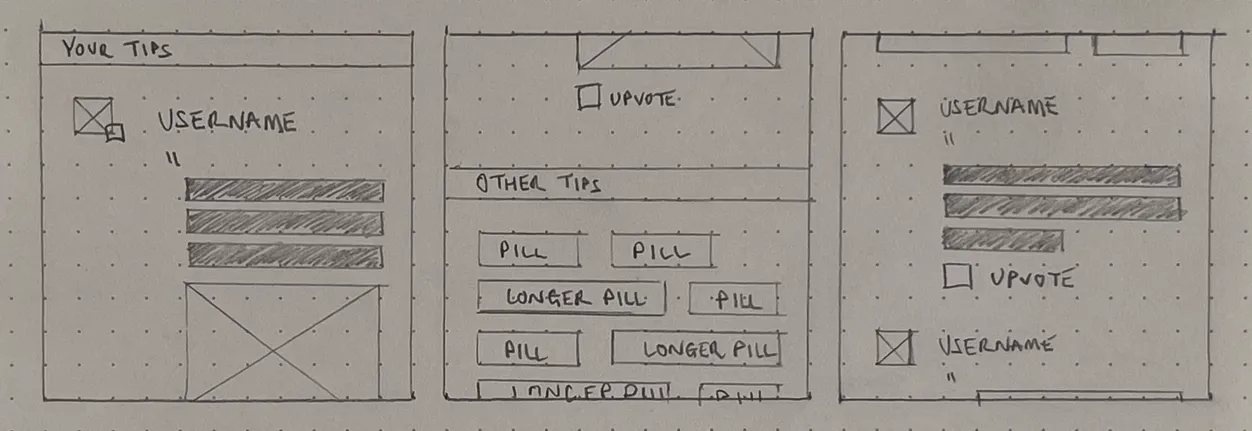 YOUR TIPS
USERNAME
"
UPVOTE
OTHER TIPS
PILL PILL
LONGER PILL PILL
PILL LONGER PILL
LONGER PILL PILL
USERNAME
"
UPVOTE
USERNAME
"